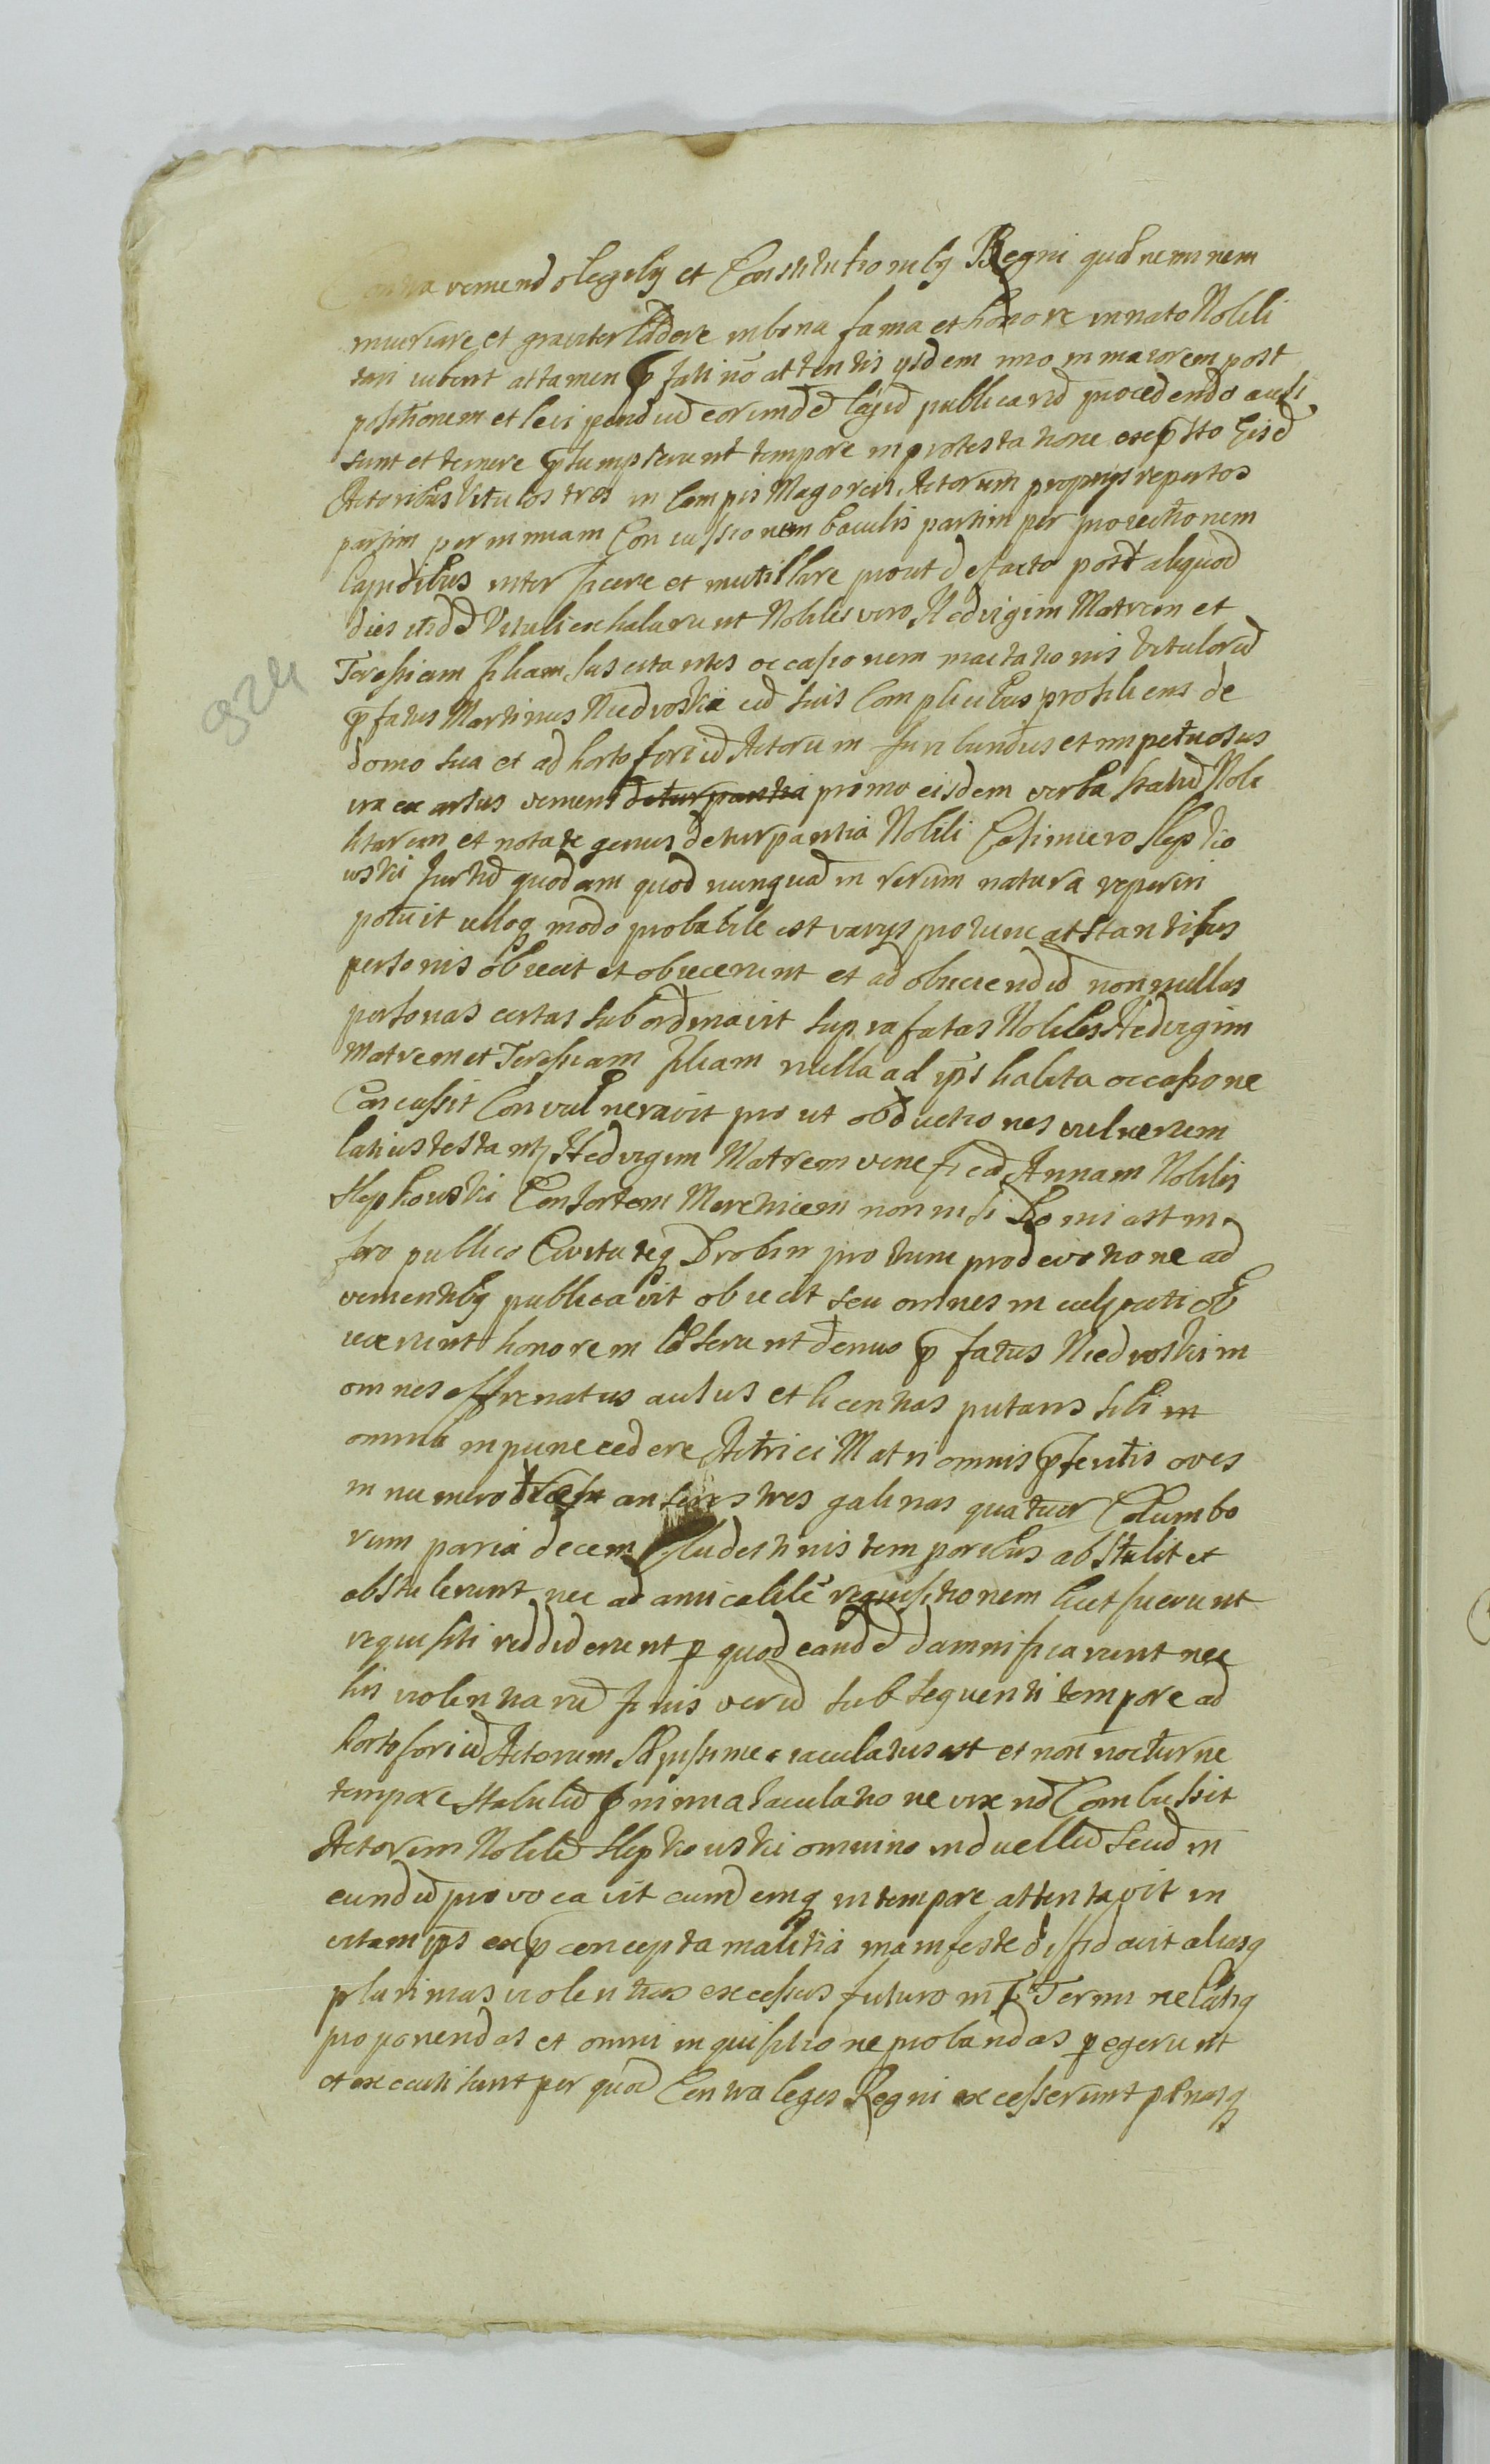 Contra veniendo legibq et Constitutionibq Regni qud neminem
iniuriare et graviter lædere in bona fama et honore innato Nobili
tari iubent attamen pfati nō attentis ijsdem imo in maiorem post
positionem et levi pend iū eorundē legū publicarū procedendo ausi
sunt et temere psumpserunt tempore in protestatione expsto Eisdē
Actoribus Vitulos tres in Campis Magorcin Actorum proprijs repertos
partim per nimiam Concussionem baculis partim per proiectionem
lapidibus interficere et mutillare prout de facto post aliquod
dies itidē Vituli exhalarunt Nobiles vero Hedvigim Matrem et
Teressiam filiam suscitantes occasionem mactationis Vitulorū
824
pfatus Martinus Niedroskii cū suis Complicibus prosiliens de
domo sua et ad hortoforiū Actorum furibundus et impetuosus
ira ex arsus veniens deturpantia primo eisdem verba statū Nobi
litarem et notate genus deturpantia Nobili Casimiero Slepko
wski furtū quodam quod nunquā in rerum natura reperiri
potuit ulloq modo probabile est varijs protunc atstantibus
personis obiecit et obiecerunt et ad obiiciendū nonnullas
personas certas subordinavit suprafatas Nobiles Hedvigim
Matrem et Teressiam filiam nulla ad ips habita occasione
Concussit Convulneravit pro ut obductiones vulnerum
latius testantq Hedvigim Matrem veneficā Annam Nobilis
Slepkowski Consortem Meretricem non nisi Domi ast in
foro publico Civitateq Drobin pro tunc pro devotione ad
venientibq publicavit obiecit seu omnes in culpati ob
iecerunt honorem læserunt denuo pfatus Niedroski in
omnes effrenatus ausus et licentias putans sibi in
omnia impune cedere Actrici Matri omnis psentis oves
in numero anseres tres galinas quatuor Columbo
rum paria decem Cludestinis temporibus abstulit et
abstulerunt nec ad amicabilē requisitionem licet fuerunt
requisiti reddiderunt p quod eandē damnificarunt nec
his violentiarū finis verū subsequenti tempore ad
hortoforiū Actorum sæpissime eiaculatus est et non nocturne
tempore stabulū p nimia iaculatione vix nō Combussit
Actorem Nobilē Slepkowski omnino in duellū secū in
eundū provocavit eumdemq in tempore attentavit in
vitam ips ex pconcepta malitia manifeste diffidavit aliasq
plurimas violentias excessus futuro in Termine latiq
proponendas et omni inquisitione probandas pegerunt
et executi sunt per quod Contra leges Regni excesserunt pænasq